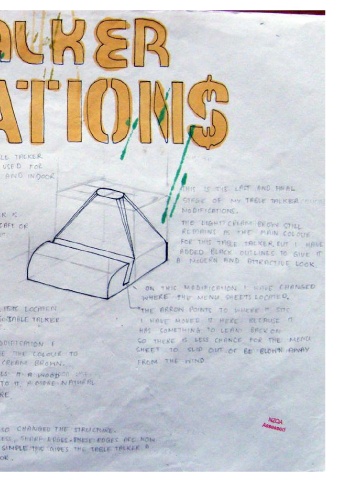 ALKER
ATION$
BLE TALKER
USED FOR
AND INDOOR
THIS IS THE LAST AND FINAL
STAGE OF MY TABLE TALKER
MODIFICATIONS.
THE LIGHT/CREAM BROWN STILL
REMAINS AS THE MAIN COLOUR
FOR THIS TABLE TALKER BUT I HAVE
ADDED BLACK OUTLINES TO GIVE IT
A MODERN AND ATTRACTIVE LOOK.
ON THIS MODIFICATION I HAVE CHANGED
WHERE THE MENU SHEET IS LOCATED
THE ARROW POINTS TO WHERE IT IS
I HAVE MOVED IT HERE BECAUSE IT
HAS SOMETHING TO LEAN BACK ON
SO THERE IS LESS CHANCE FOR THE MENU
SHEET TO SLIP OUT OR BE BLOWN AWAY
FROM THE WIND.
LOCATED
TABLE TALKER
MODIFICATION I
THE COLOUR TO
CREAM BROWN.
A MORE NATURAL
CHANGED THE STRUCTURE.
SHARP EDGES. THESE EDGES ARE NOW
SIMPLE THIS GIVES THE TABLE TALKER A
NZQA
Assessed